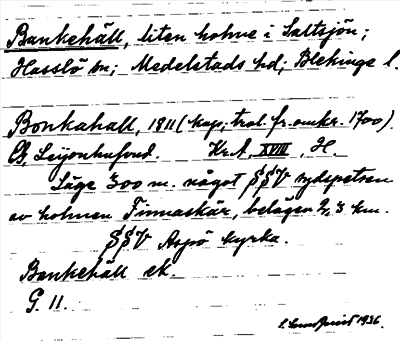 Bankehäll, liten holme i Saltsjön;
Hasslö sn; Medelstads hd; Blekinge l.
Bonkahall, 1811 (kop; tral. fr. omkr. 1700).
CG, Leijonhufvud. Kr.A, XVIII, H.
Läge 300 m. något SSV sydspetsen
av holmen Finnaskär, belägen 2,3 km.
SSV Aspö kyrka.
Bankehäll ek.
G. 11.
1936.